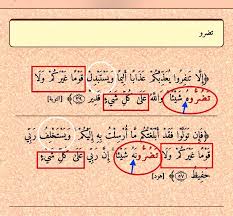 تضرو
﴿إِلَّا تَنفِرُوا يُعَذِّبْكُمْ عَذَابًا أَلِيمًا وَيَسْتَبْدِلْ قَوْمًا غَيْرَكُمْ وَلَا
تَضُرُّوهُ شَيْئًا وَاللَّهُ عَلَى كُلِّ شَيْءٍ قَدِيرٌ ﴿٣٩﴾ [التوبة]
﴿فَإِن تَوَلَّوْا فَقَدْ أَبْلَغْتُكُم مَّا أُرْسِلْتُ بِهِ إِلَيْكُمْ وَيَسْتَخْلِفُ رَبِّي
قَوْمًا غَيْرَكُمْ وَلَا تَضُرُّونَهُ شَيْئًا إِنَّ رَبِّي عَلَى كُلِّ شَيْءٍ
حَفِيظٌ ﴿٥٧﴾ [هود]